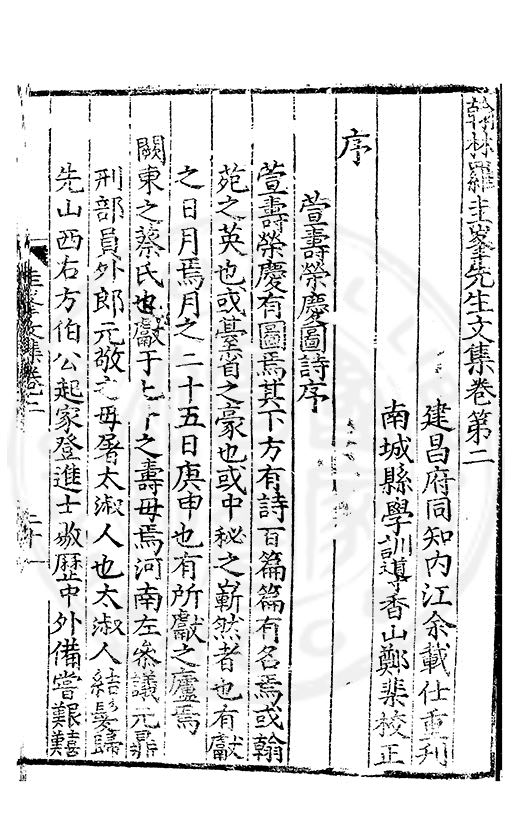 翰林羅圭峯先生文集卷第二
建昌府同知內江余載仕重刋
南城縣學訓導香山鄭棐校正
序
萱壽榮慶圖詩序
萱壽榮慶有圖焉其下方有詩百篇篇有名焉或翰
苑之英也或臺省之豪也或中秘之嶄然者也有獻
之日月焉月之二十五日庚申也有所獻之廬焉
闕東之蔡氏也獻于七十之壽母焉河南左叅議元鼎
刑部員外郎元敬之母屠太淑人也太淑人結髮歸
先山西右方伯公起家登進士敭歷中外備嘗艱難
圭峯文集卷二